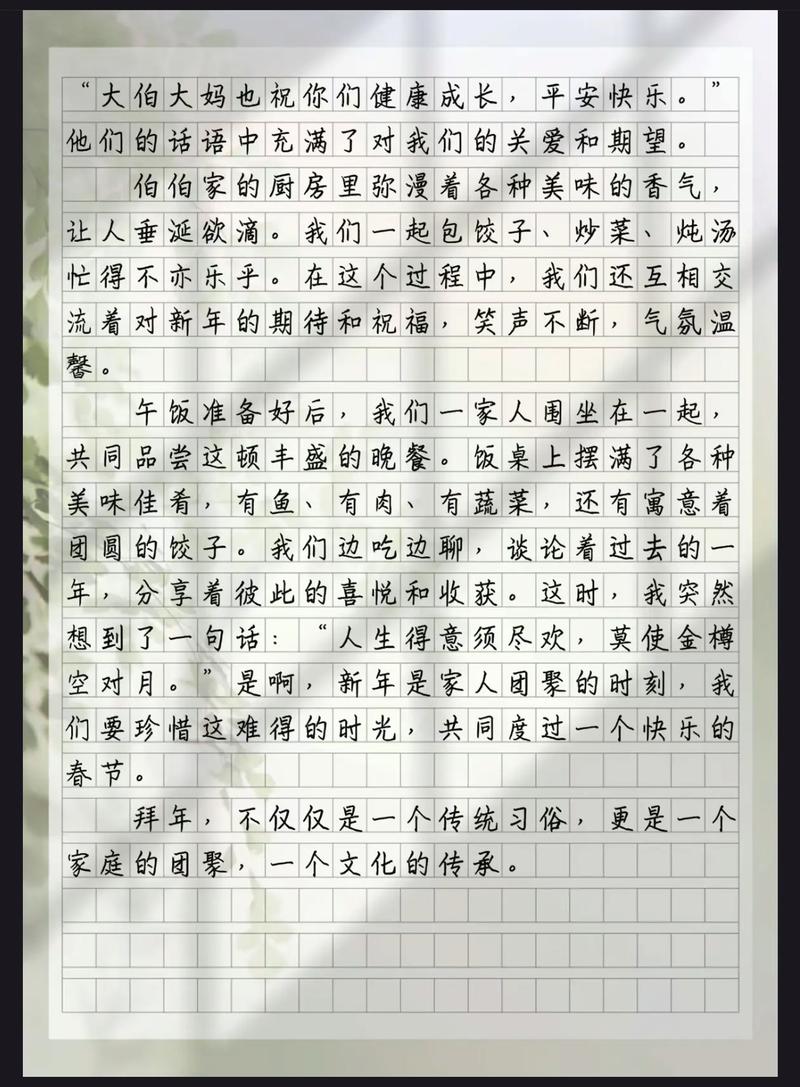 “大伯大妈也祝你们健康成长，平安快乐。”
他们的话语中充满了对我们的关爱和期望。
伯伯家的厨房里弥漫着各种美味的香气，
让人垂涎欲滴。我们一起包饺子、炒菜、炖汤
忙得不亦乐乎。在这个过程中，我们还互相交
流着对新年的期待和祝福，笑声不断，气氛温
馨。
午饭准备好后，我们一家人围坐在一起，
共同品尝这顿丰盛的晚餐。饭桌上摆满了各种
美味佳肴，有鱼、有肉、有蔬菜，还有寓意着
团圆的饺子。我们边吃边聊，谈论着过去的一
年，分享着彼此的喜悦和收获。这时，我突然
想到了一句话：“人生得意须尽欢，莫使金樽
空对月。”是啊，新年是家人团聚的时刻，我
们要珍惜这难得的时光，共同度过一个快乐的
春节。
拜年，不仅仅是一个传统习俗，更是一个
家庭的团聚，一个文化的传承。